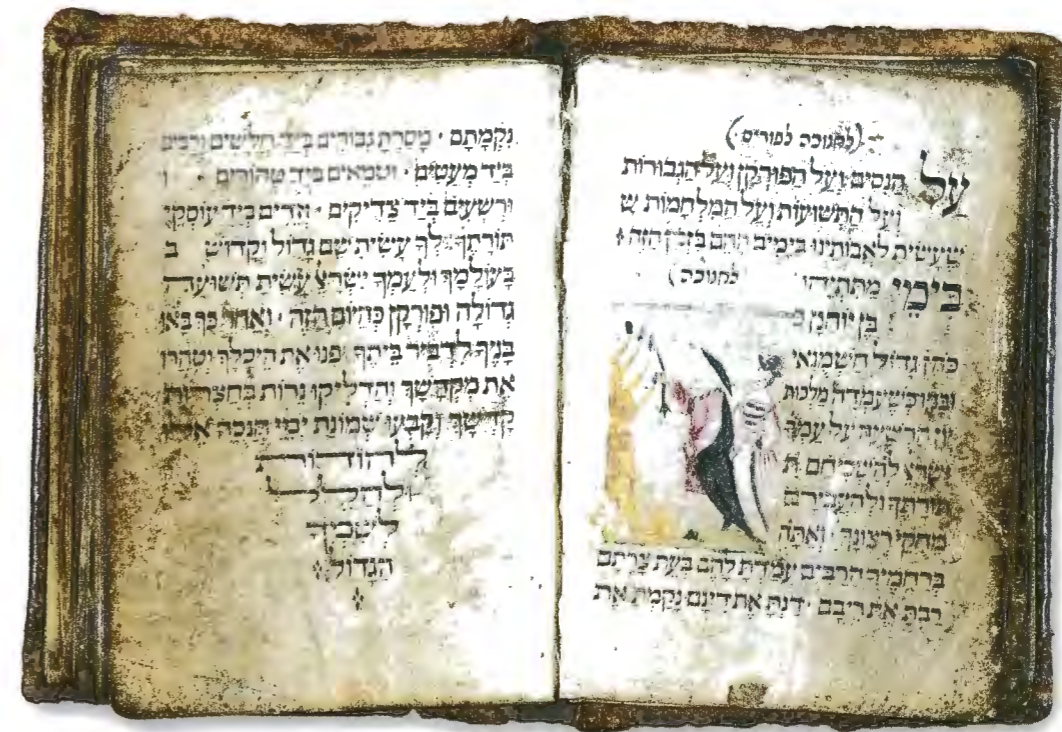 (לחנוכה לפורים)
עַל הַנִּסִּים וְעַל הַפּוּרְקָן וְעַל הַגְּבוּרוֹת
וְעַל הַתְּשׁוּעוֹת וְעַל הַמִּלְחָמוֹת שֶׁ
שֶׁעָשִׂיתָ לַאֲבוֹתֵינוּ בַּיָּמִים הָהֵם בַּזְּמַן הַזֶּה
בִּימֵי מַתִּתְיָהוּ לחנוכה)
בֶּן יוֹחָנָן
כֹּהֵן גָּדוֹל חַשְׁמֹנָאִי
וּבָנָיו כְּשֶׁעָמְדָה מַלְכוּת
יָוָן הָרְשָׁעָה עַל עַמְּךָ
לְהַשְׁכִּיחָם ת
תּוֹרָתֶךָ וּלְהַעֲבִירָם
מֵחֻקֵּי רְצוֹנֶךָ · וְאַתָּה
בְּרַחֲמֶיךָ הָרַבִּים עָמַדְתָּ לָהֶם בְּעֵת צָרָתָם
רַבְתָּ אֶת רִיבָם · דַּנְתָּ אֶת דִּינָם נָקַמְתָּ אֶת
נִקְמָתָם · מָסַרְתָּ גִבּוֹרִים בְּיַד חַלָּשִׁים וְרַבִּים
בְּיַד מְעַטִּים · וּטְמֵאִים בְּיַד טְהוֹרִים · ו
וּרְשָׁעִים בְּיַד צַדִּיקִים · וְזֵדִים בְּיַד עוֹסְקֵי
תּוֹרָתֶךָ · לְךָ עָשִׂיתָ שֵׁם גָּדוֹל וְקָדוֹשׁ ב
בָּעוֹלָמֶךָ וּלְעַמְּךָ עָשִׂיתָ תְּשׁוּעָה
גְדוֹלָה וּפוּרְקָן כְּהַיּוֹם הַזֶּה · וְאַחַר כָּךְ בָּאוּ
בָּנֶיךָ לִדְבִיר בֵּיתֶךָ פִּנּוּ אֶת הֵיכָלֶךָ וְטִהֲרוּ
אֶת מִקְדָּשֶׁךָ וְהִדְלִיקוּ נֵרוֹת בְּחַצְרוֹת
קָדְשֶׁךָ וְקָבְעוּ שְׁמוֹנַת יְמֵי חֲנֻכָּה אֵילּוּ
לְהוֹדוֹת
וּלְהַלֵּל
לְשִׁמְךָ
הַגָּדוֹל